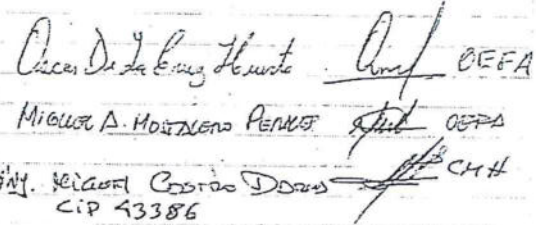 Oscar De La Cruz Huerta OEFA
MIGUEL A. MONTALERO PERALES OEFA
ING. MIGUEL CASTRO CMH
CIP 43386